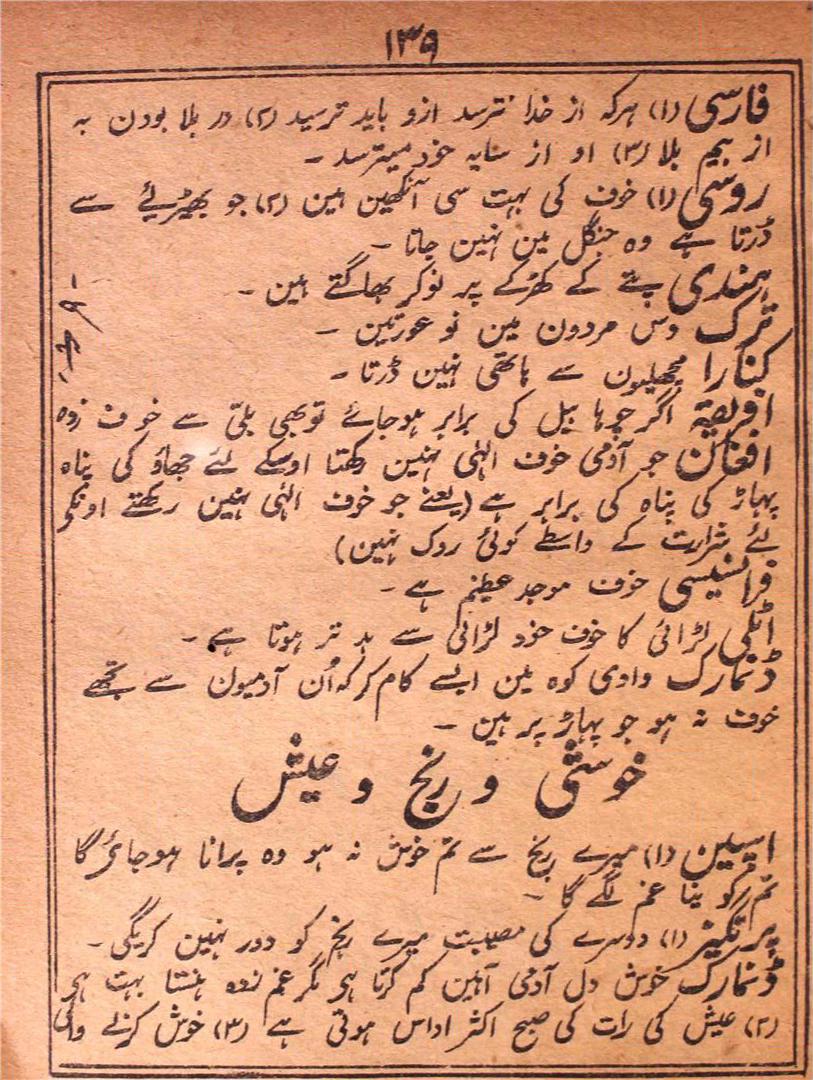 ۱۳۹
فارسی (۱) ہرکہ از خدا نترسد ازو باید ترسید (۲) در بلا بودن بہ
از بیم بلا (۳) او از سایہ خود میترسد ۔
روسی (۱) خوف کی بہت سی آنکھین ہین (۲) جو بھیڑیے سے
ڈرتا ہے وہ جنگل مین نہین جاتا ۔
ہندی پتے کے کھڑکے پہ نوکر بھاگتے ہین ۔
ترک دس مردون مین نو عورتین ۔
کنارا مچھلیون سے ہاتھی نہین ڈرتا ۔
افریقہ اگر چوہا بیل کی برابر ہوجائے توبھی بلّی سے خوف زدہ
افغان جو آدمی خوف الہٰی نہین رکھتا اوسکے لئے جھاؤ کی پناہ
پہاڑ کی پناہ کی برابر ہے (یعنے جو خوف الہٰی نہین رکھتے اونکے
لئے شرارت کے واسطے کوئی روک نہین)
فرانسیسی خوف موجد عظیم ہے ۔
اٹلی لڑائی کا خوف خود لڑائی سے بد تر ہوتا ہے ۔
ڈنمارک وادی کوہ مین ایسے کام کر کہ اُن آدمیون سے تجھے
خوف نہ ہو جو پہاڑ پر ہین ۔
خوشی و رنج و عیش
اسپین (۱) میرے رنج سے تم خوش نہ ہو وہ پرانا ہوجائے گا
تم کو نیا غم لگے گا ۔
پرتگیز (۱) دوسرے کی مصیبت میرے رنج کو دور نہین کریگی ۔
ڈنمارک خوش دل آدمی آہین کم کرتا ہی مگر غم زدہ ہنستا بہت ہی
(۲) عیش کی رات کی صبح اکثر اداس ہوتی ہے (۳) خوش کرنے والی